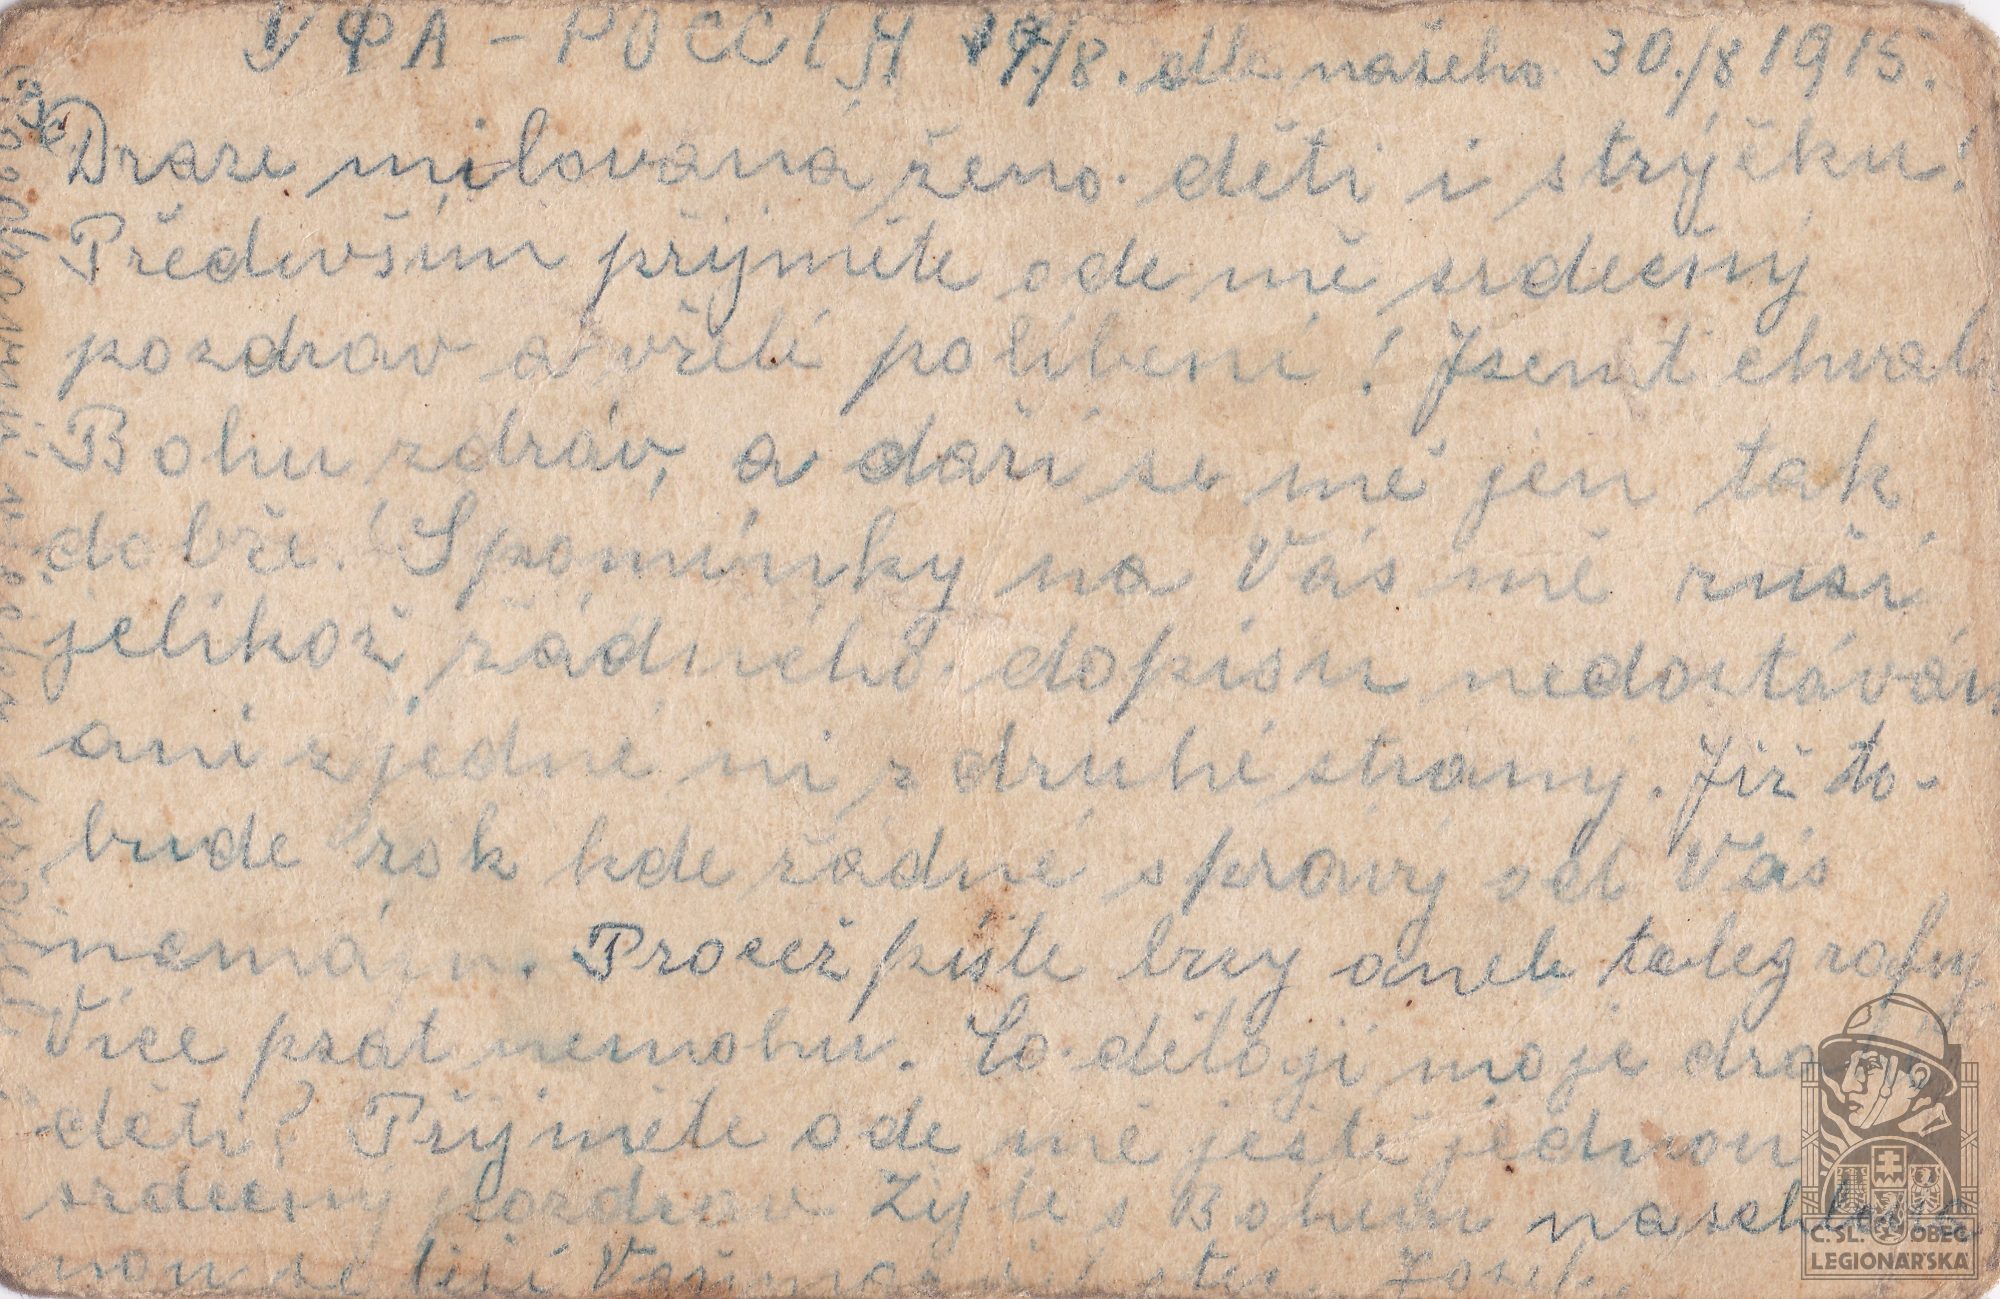 УФА - РОССІЯ 17/8. dle našeho 30./8 1915.
Draze milovaná ženo děti i strýčku!
Předevšim přijměte ode mě srdečný
pozdrav a vřelé políbení! Jsemť chvala
Bohu zdráv, a daří se mě jen tak
dobře! Spomínky na Vás mě ruší
jelikož žádného dopisu nedostávám
ani z jedné ni z druhé strany. Již to-
bude rok kde žádné spravy od Vás
nemáju. Pročež pište brzy aneb telegrafuj
Více psát nemohu. Co dělají moje drahé
děti? Přijměte ode mě ještě jednou
srdečný pozdrav Žijte s Bohem naschle
nou se těší Váš otec. Josef.
Č. SL. OBEC
LEGIONÁŘSKÁ